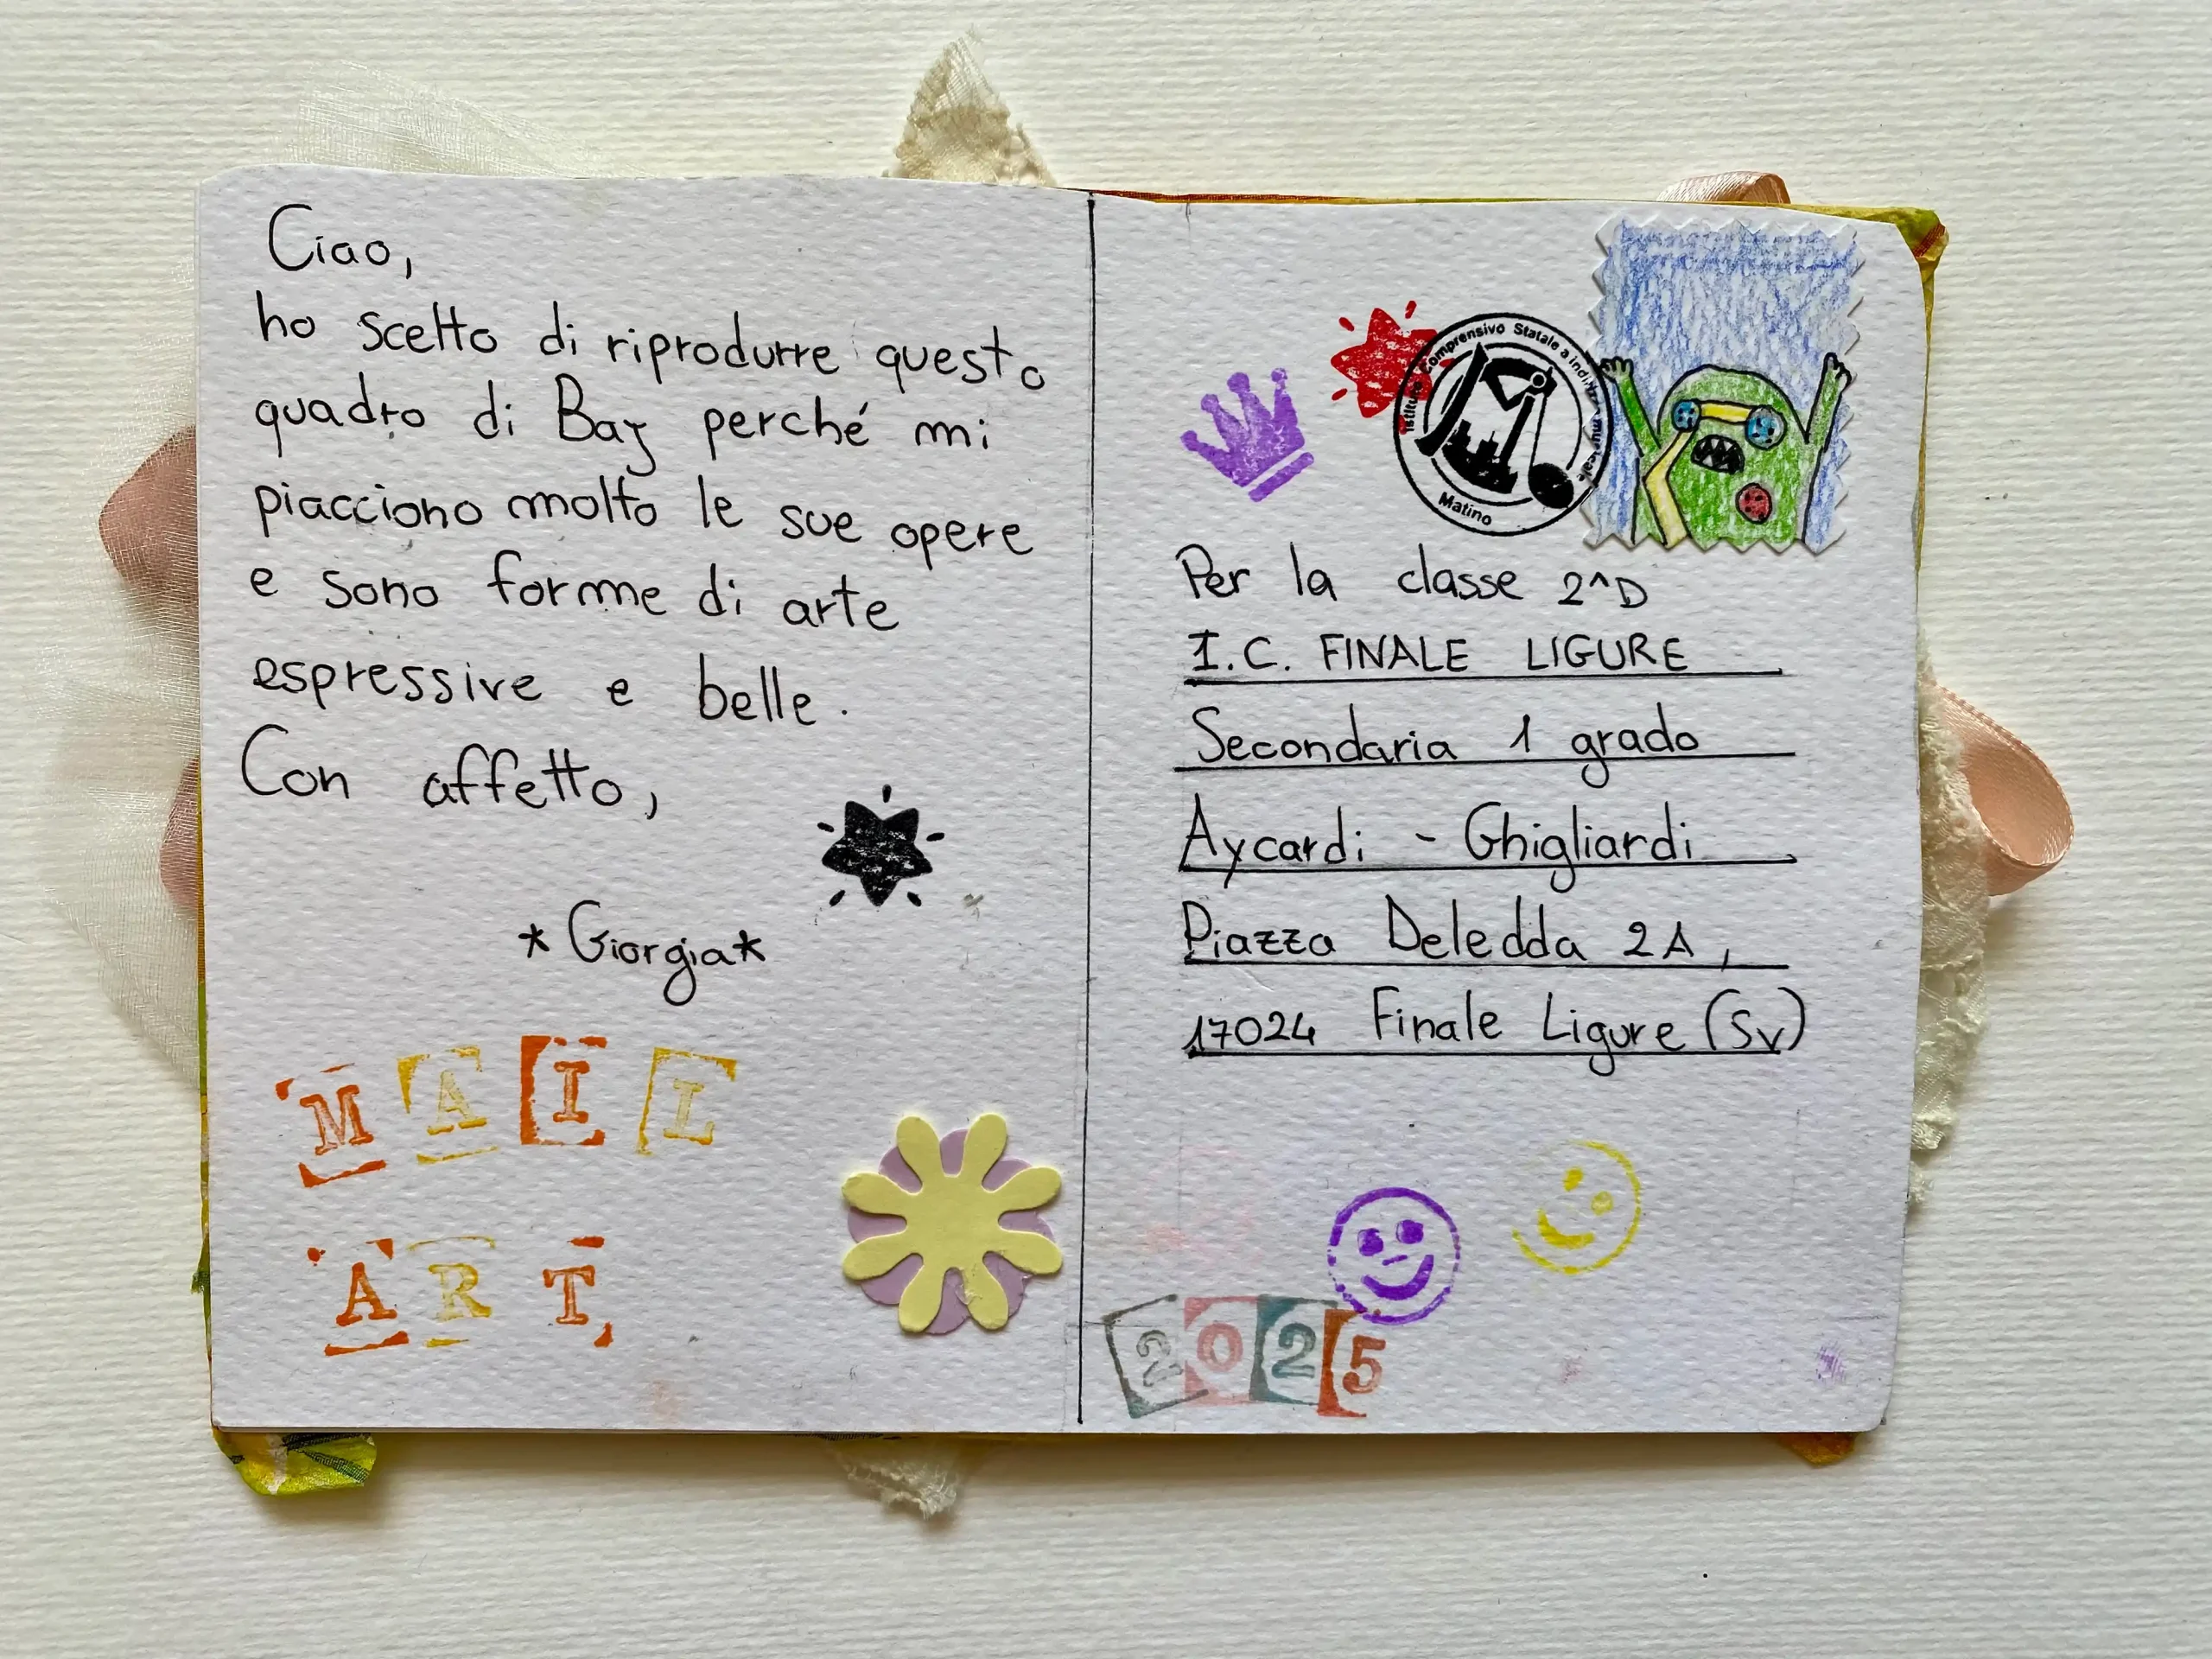 Ciao,
ho scelto di riprodurre questo
quadro di Baj perché mi
piacciono molto le sue opere
e sono forme di arte
espressive e belle.
Con affetto,
*Giorgia*
MAIL
ART
Istituto Comprensivo Statale a indirizzo musicale
Matino
Per la classe 2^D
I.C. FINALE LIGURE
Secondaria 1 grado
Aycardi - Ghigliardi
Piazza Deledda 2A,
17024 Finale Ligure (SV)
2025